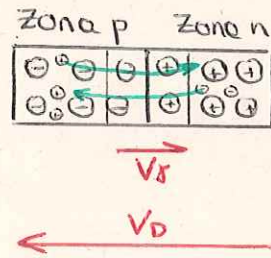 Zona p Zona n
⊖ + ⊖ ⊖ ⊕ ⊕ ⊕
⊖ + + ⊖ ⊖ ⊕ ⊕ - - ⊕
Vγ
VD